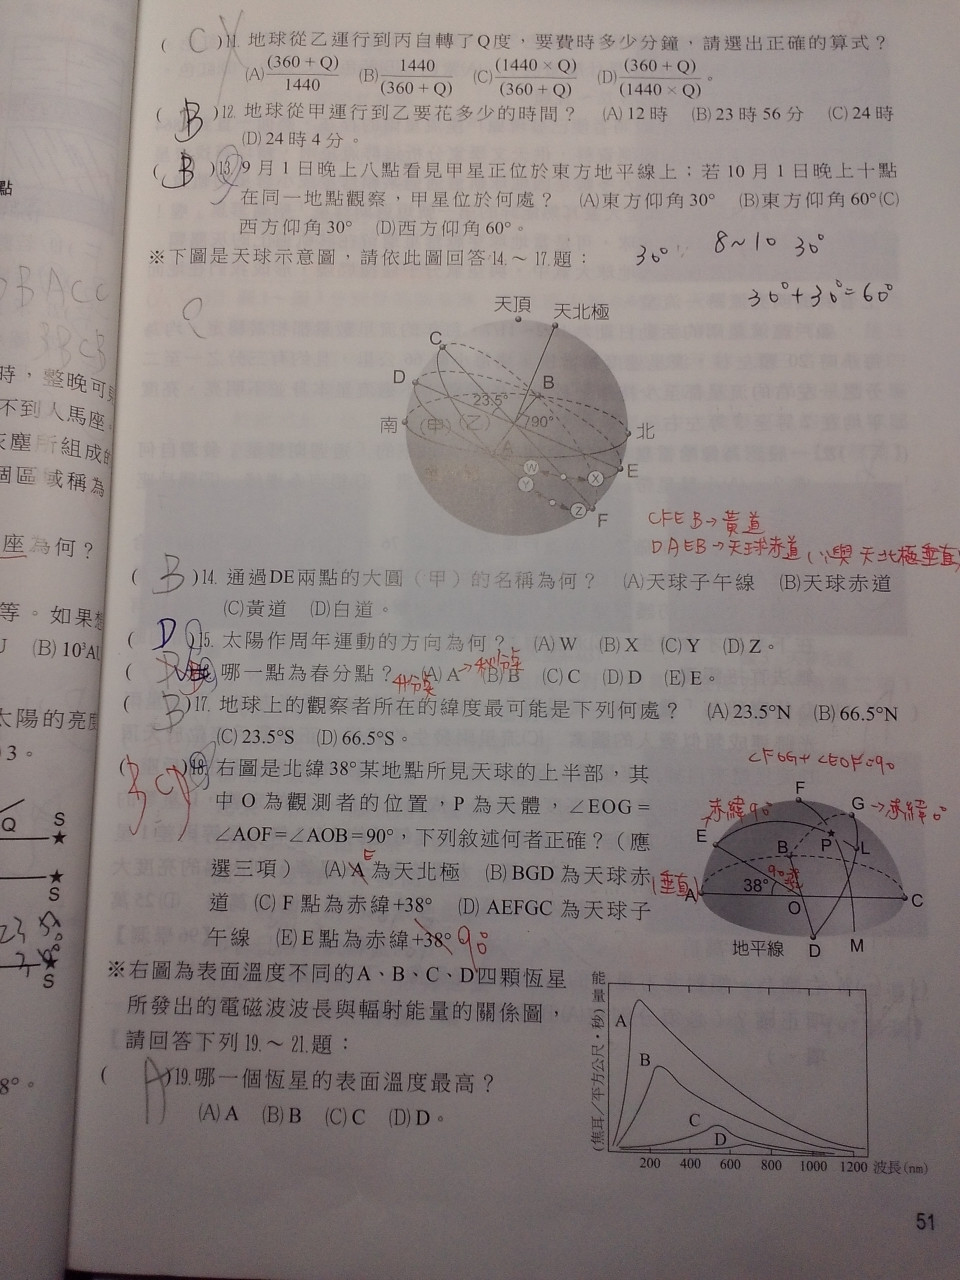 ( C )11. 地球從乙運行到丙自轉了Q度，要費時多少分鐘，請選出正確的算式？
(A)(360 + Q)/1440 (B)1440/(360 + Q) (C)(1440 × Q)/(360 + Q) (D)(360 + Q)/(1440 × Q)。
( B )12. 地球從甲運行到乙要花多少的時間？ (A)12時 (B)23時56分 (C)24時
(D)24時4分。
( B )13. 9月1日晚上八點看見甲星正位於東方地平線上；若10月1日晚上十點
在同一地點觀察，甲星位於何處？ (A)東方仰角30° (B)東方仰角60°(C)
西方仰角30° (D)西方仰角60°。
30° 8~10 30°
※下圖是天球示意圖，請依此圖回答14.～17.題：
30°+30°=60°
天頂
天北極
C
D
B
23.5°
南
(甲)(乙)
790°
北
A
W
X
E
Y
Z
F
CFEB→黃道
DAEB→天球赤道(與天北極垂直)
( B )14. 通過DE兩點的大圓（甲）的名稱為何？ (A)天球子午線 (B)天球赤道
(C)黃道 (D)白道。
( D )15. 太陽作周年運動的方向為何？ (A)W (B)X (C)Y (D)Z。
→秋分點
( B )16. 哪一點為春分點？ (A)A (B)B (C)C (D)D (E)E。
( B )17. 地球上的觀察者所在的緯度最可能是下列何處？ (A)23.5°N (B)66.5°N
(C)23.5°S (D)66.5°S。
( BCD )18. 右圖是北緯38°某地點所見天球的上半部，其
中O為觀測者的位置，P為天體，∠EOG=
∠AOF=∠AOB=90°，下列敘述何者正確？（應
選三項） (A)A為天北極 (B)BGD為天球赤
E
道 (C) F點為赤緯+38° (D) AEFGC為天球子
午線 (E)E點為赤緯+38° 90°
∠FOG+∠EOF=90
F
赤緯90°
G →赤緯0°
E
B
P
L
(垂直)
A
38°
90度
O
C
地平線
D
M
※右圖為表面溫度不同的A、B、C、D四顆恆星
所發出的電磁波波長與輻射能量的關係圖，
請回答下列19.～21.題：
( A )19.哪一個恆星的表面溫度最高？
(A)A (B)B (C)C (D)D。
能量（焦耳／平方公尺・秒）
A
B
C
D
200 400 600 800 1000 1200 波長(nm)
51
點
時，整晚可
不到人馬座
灰塵所組成的
個區域稱為
座為何？
等。如果想
(B) 10³AU
太陽的亮度
3。
Q
S
S
S
8°。